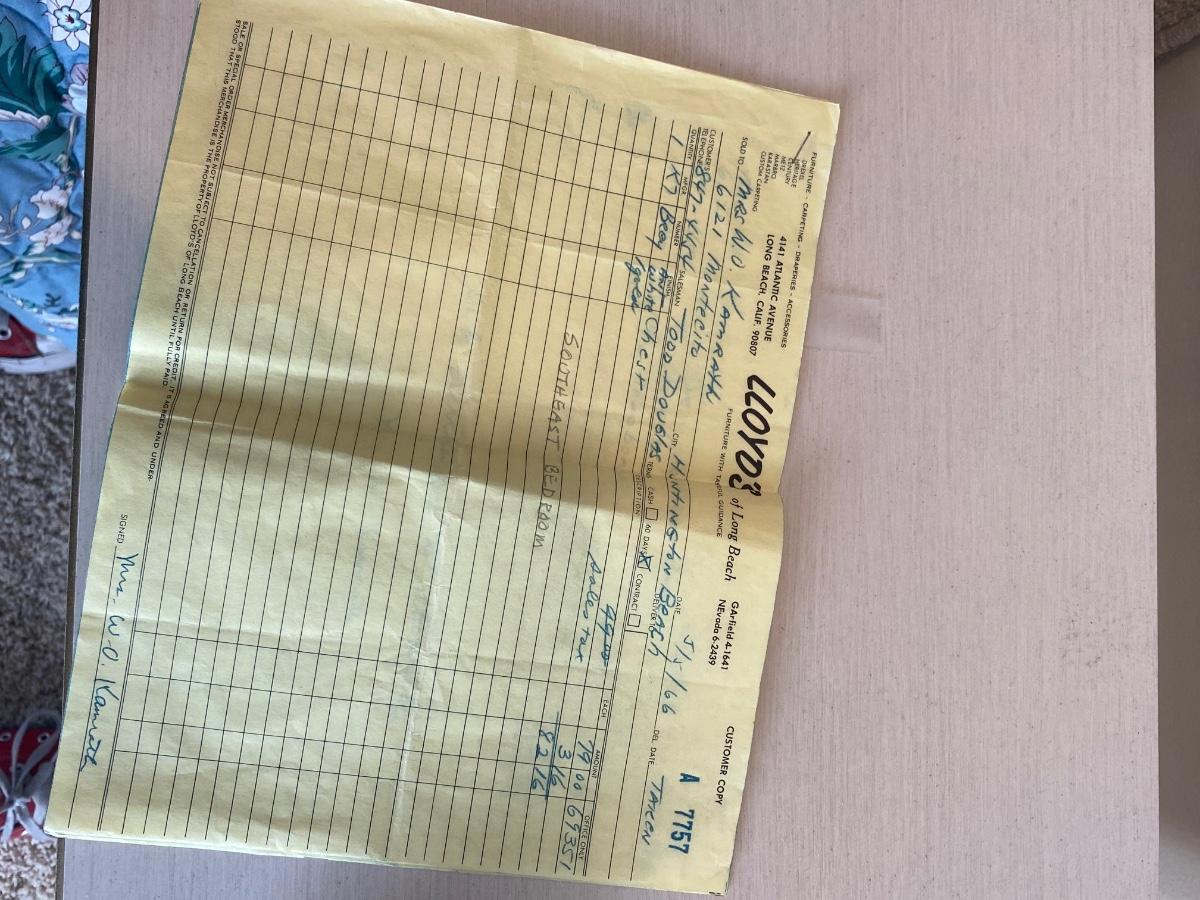 FURNITURE - CARPETING - DRAPERIES - ACCESSORIES
DREXEL
HERITAGE
CENTURY
METZ
MARBRO
KARASTAN
CUSTOM CARPETING
4141 ATLANTIC AVENUE
LONG BEACH, CALIF. 90807
LLOYDS of Long Beach
FURNITURE WITH TASTEFUL GUIDANCE
GArfield 4-1641
NEvada 6-2439
CUSTOMER COPY
A 7757
SOLD TO Mrs W.O. KAMRATH DATE 5/5/66
6121 Montecito CITY Huntington Beach
CUSTOMER'S TELEPHONE 847-4454 SALESMAN TODD Douglas TERMS CASH 60 DAYS X CONTRACT DELIVER TO DEL. DATE TAKEN
QUANTITY MFGR. NUMBER FINISH DESCRIPTION EACH AMOUNT OFFICE ONLY
1 Ant white Chest 99.00 79 00 69351
green Sales tax 3 16
82 16
SOUTHEAST BEDROOM
SALE OR SPECIAL ORDER MERCHANDISE NOT SUBJECT TO CANCELLATION OR RETURN FOR CREDIT. IT IS AGREED AND UNDER-
STOOD THAT THIS MERCHANDISE IS THE PROPERTY OF LLOYD'S OF LONG BEACH UNTIL FULLY PAID.
SIGNED Mrs. W.O. Kamrath